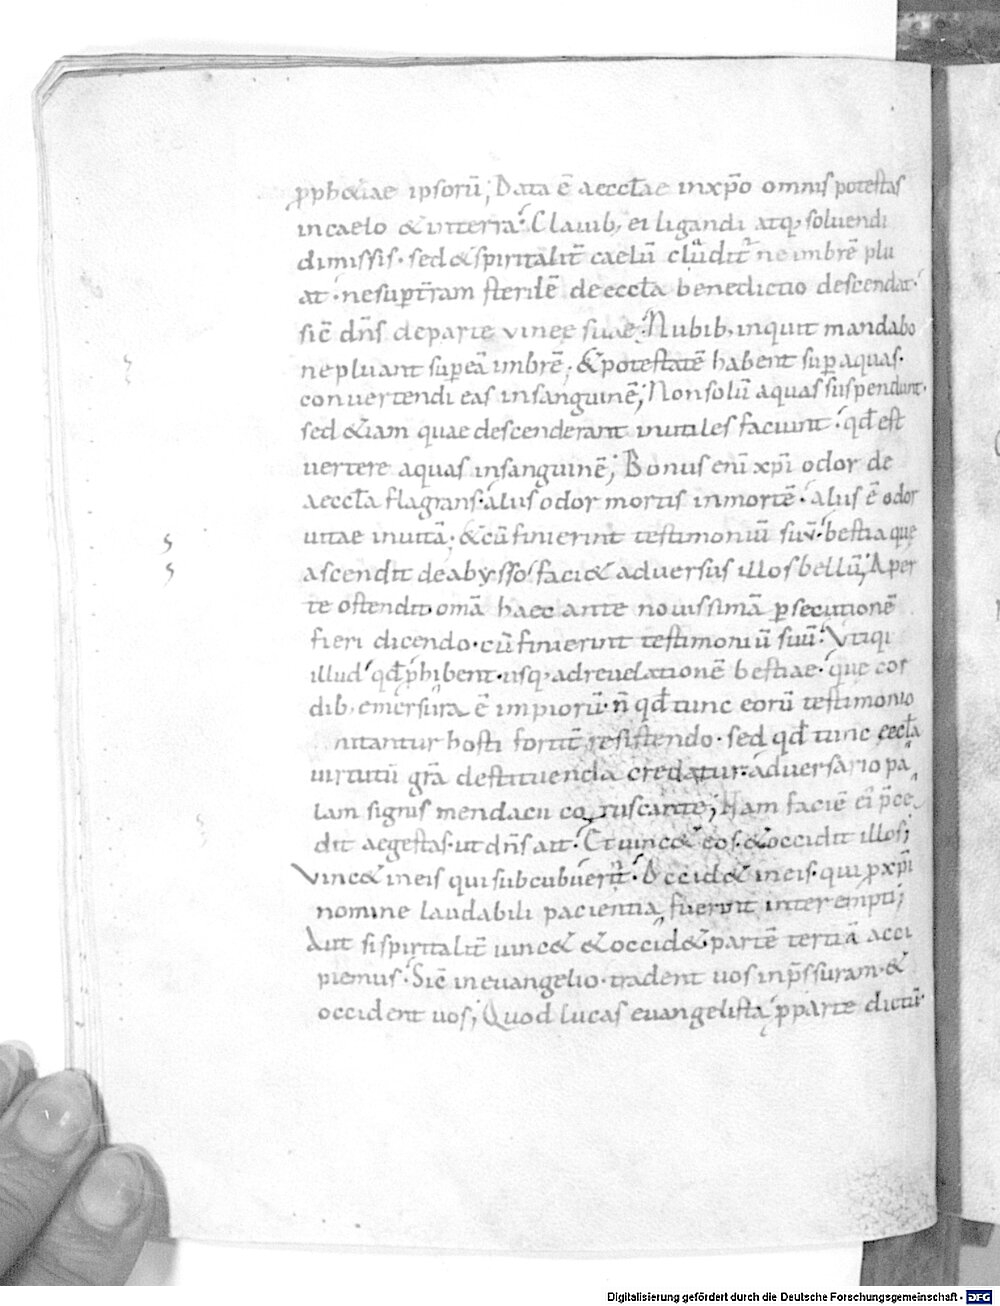 pph&iae ipsorū; Data ē aeccl̄ae inxp̄o omnis potestas
incaelo & interra· Clauib; ei ligandi atq; soluendi
dimissis· sed & spiritalit̄ caelū clūdit̄ ne imbrē plu
at· nesup̄ t̄ram sterilē deeccl̄a benedictio descendat·
sic̄ dn̄s departe vinee suae; Nubib; inquit mandabo
nepluant sup eā imbrē; & potestatē habent sup aquas·
conuertendi eas insanguinē; Nonsolū aquas suspendunt·
sed &iam quae descenderant inutiles faciunt· qd̄ est
uertere aquas insanguinē; Bonus eni xp̄i odor de
aeccl̄a flagrans· alius odor mortis inmortē· alius ē odor
uitae inuitā· & cū finierint testimoniū suū· bestia que
ascendit deabysso faci& adversus illos bellū; Aper
te ostendit omā haec ante nouissimā p̱secutionē
fieri dicendo· cū finierint testimoniū suū· Vtiqi
illud qd̄ p̄hibent· usq; adreuelationē bestiae· que cor
dib; emersura ē impiorū· n̄ qd̄ tunc eorū testimonio
nitantur hosti fortit̄ resistendo· sed qd̄ tunc eccl̄a
uirtutū gr̄a destituenda credatur· adversario pa
lam signis mendacii coruscante; Nam faciē ei p̄ce
dit aegestas· ut dn̄s ait· Et uinc& eos· & occidit illos;
Vinc& ineis qui subcubuerit̄· Occid& ineis· qui p xp̄i
nomine laudabili pacientia fuerint interempti;
Aut si spiritalit̄ uinc& & occid&· partē tertiā acci
piemus· Sic̄ in euangelio· tradent uos inp̄ssuram· &
occident uos; Quod lucas euangelista p parte dictū·
Digitalisierung gefördert durch die Deutsche Forschungsgemeinschaft - DFG